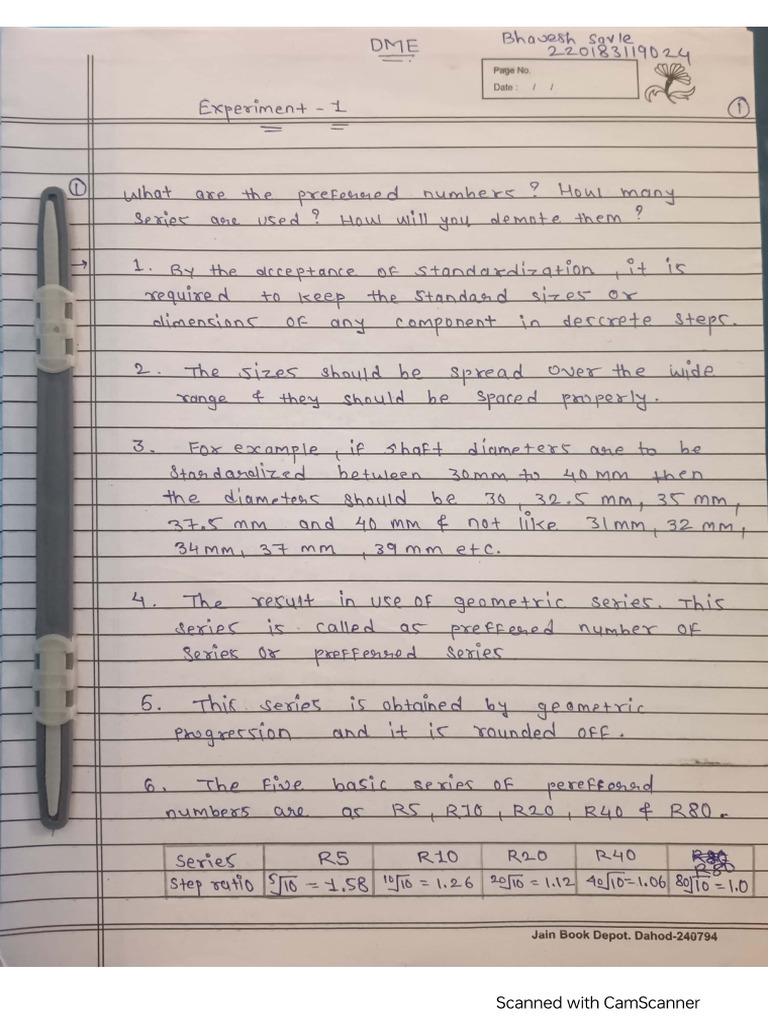 DME
Bhavesh Savle
220183119024
Page No.
Date : / /
Experiment - 1
①
① What are the preferred numbers ? How many
series are used ? How will you demote them ?
→ 1. By the acceptance of standardization , it is
required to keep the standard sizes or
dimensions of any component in descrete steps.
2. The sizes should be spread over the wide
range & they should be spaced properly.
3. For example , if shaft diameters are to be
standardized between 30mm to 40 mm then
the diameters should be 30 , 32.5 mm, 35 mm,
37.5 mm and 40 mm & not like 31mm, 32 mm,
34mm, 37 mm , 39 mm etc.
4. The result in use of geometric series. This
series is called as preffered number of
series or prefferred series
5. This series is obtained by geometric
progression and it is rounded off.
6. The five basic series of pereffored
numbers are as R5 , R10 , R20 , R40 & R80.
Series R5 R10 R20 R40 R80
Step ratio ⁵√10 = 1.58 ¹⁰√10 = 1.26 ²⁰√10 = 1.12 ⁴⁰√10 = 1.06 ⁸⁰√10 = 1.0
Jain Book Depot. Dahod-240794
Scanned with CamScanner